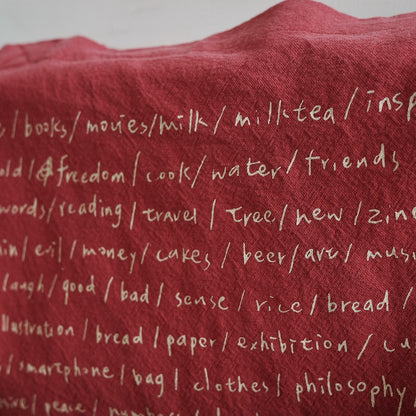 / books / movies / milk / milktea / insp
old / freedom / cook / water / friends
words / reading / travel / tree / new / zin
/ evil / money / cakes / beer / art / mus
laugh / good / bad / sense / rice / bread /
illustration / bread / paper / exhibition / cu
/ smartphone / bag / clothes / philosophy
/ peace /